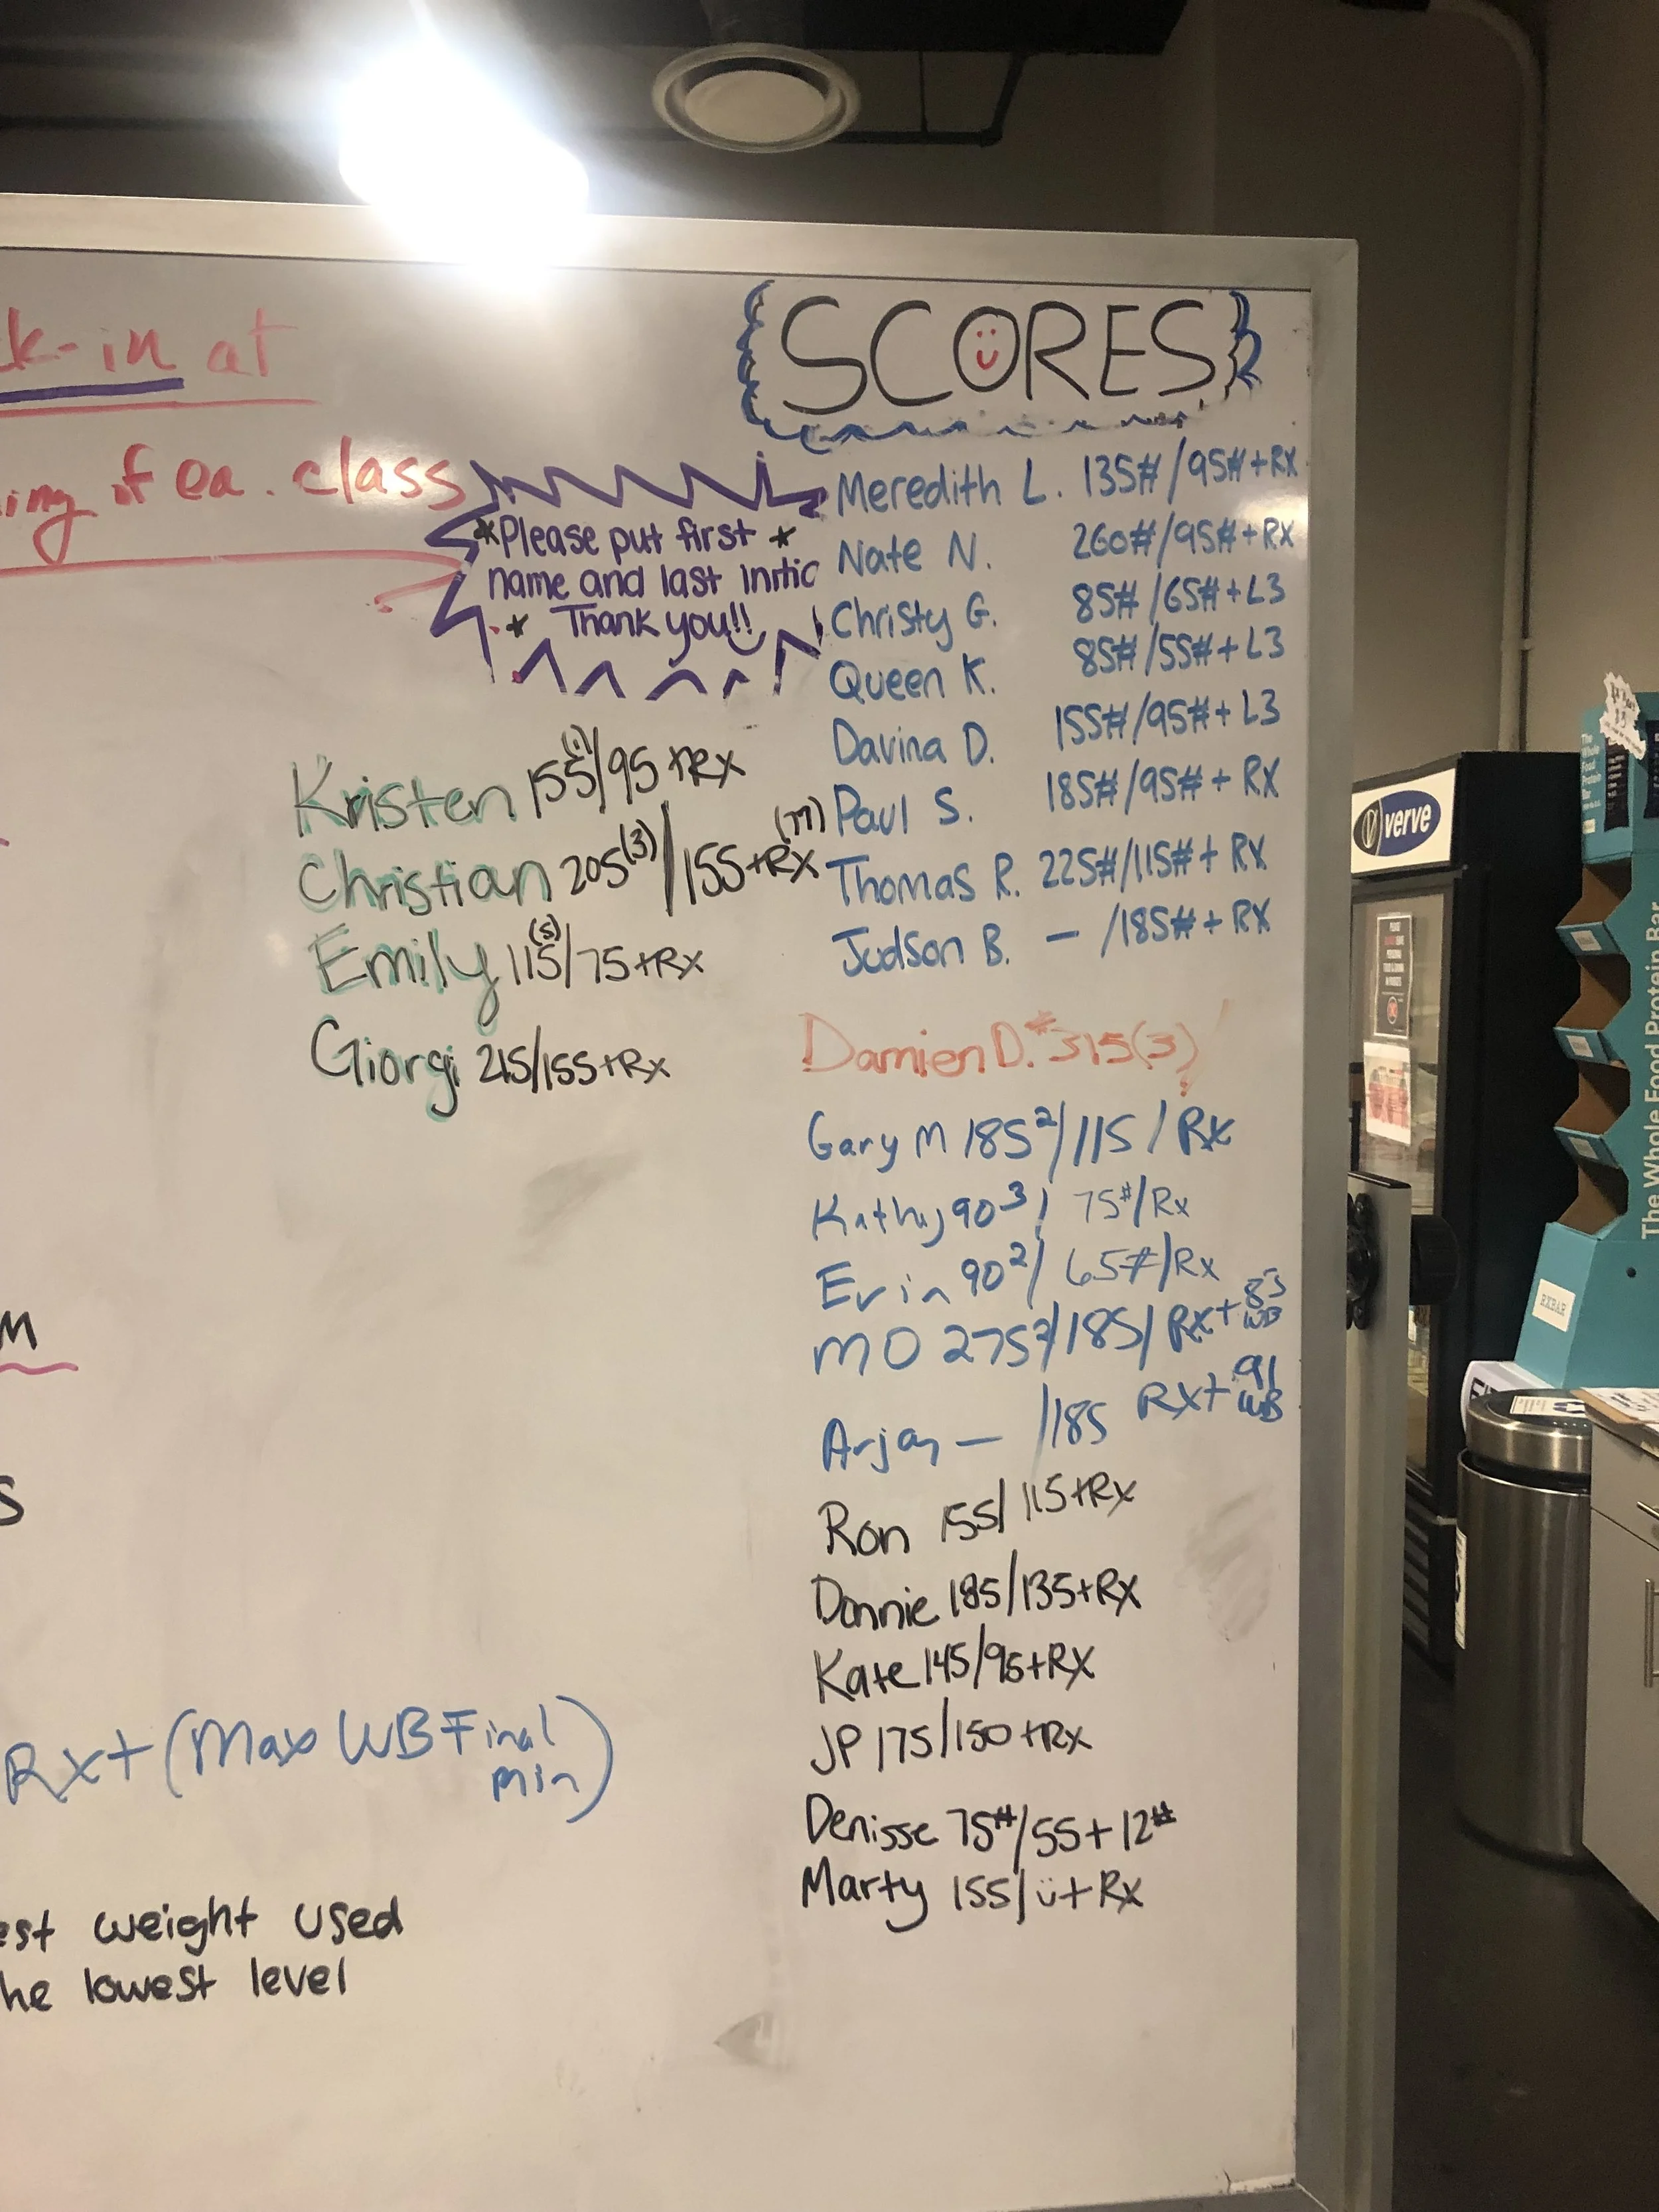 k-in at
ing of ea. class
SCORES
*Please put first *
name and last initia
* Thank you!!
Meredith L. 135#/95#+RX
Nate N. 260#/95#+RX
Christy G. 85#/65#+L3
Queen K. 85#/55#+L3
Davina D. 155#/95#+L3
Paul S. 185#/95#+RX
Thomas R. 225#/115#+RX
Judson B. — /185#+RX
Kristen 155/95+RX
Christian 205(3)/155+RX (M)
Emily 115(5)/75+Rx
Giorgi 215/155+Rx
Damien D. #315(3)
Gary M 185²/115/Rx
Kathy 90³/ 75#/Rx
Erin 90²/ 65#/Rx
MO 275²/185/Rx+ 83 WB
Arjay — /185 Rx+ 91 WB
Ron 155/115+Rx
Donnie 185/135+RX
Kate 145/95+RX
JP 175/150+Rx
Denisse 75#/55+12#
Marty 155/ü+Rx
M
s
Rx+(Max WB Final
min)
est weight used
he lowest level
verve
The Whole Food Protein Bar
The
Whole
Food
Protein
Bar
RXBAR